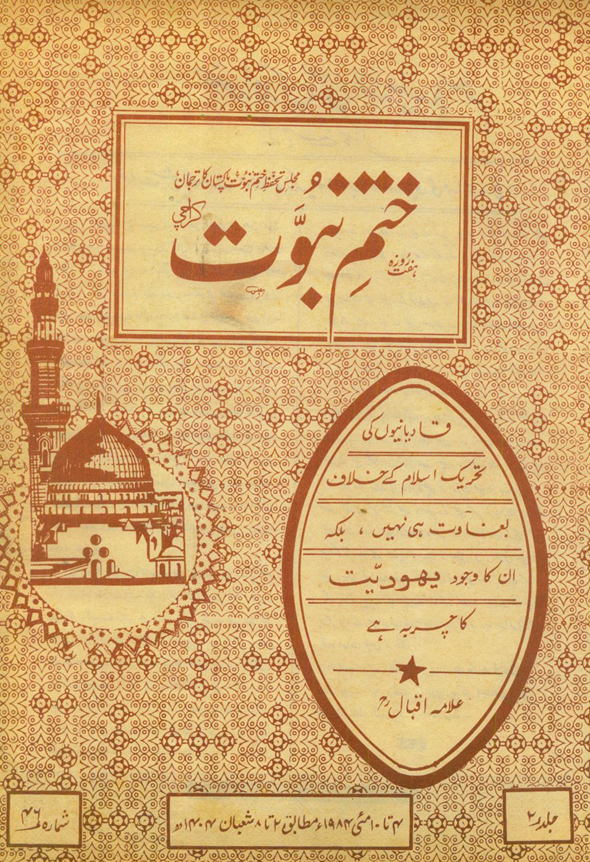 مجلس تحفظ ختم نبوت پاکستان کا ترجمان
ہفت روزہ
ختم نبوّت
کراچی
قادیانیوں کی
تحریک اسلام کے خلاف
بغاوت ہی نہیں، بلکہ
ان کا وجود یہودیّت
کا چربہ ہے
علامہ اقبالؒ
جلد ۲
۴ تا ۱۰ مئی ۱۹۸۴ء مطابق ۲ تا ۸ شعبان ۱۴۰۴ھ
شمارہ نمبر ۴۶